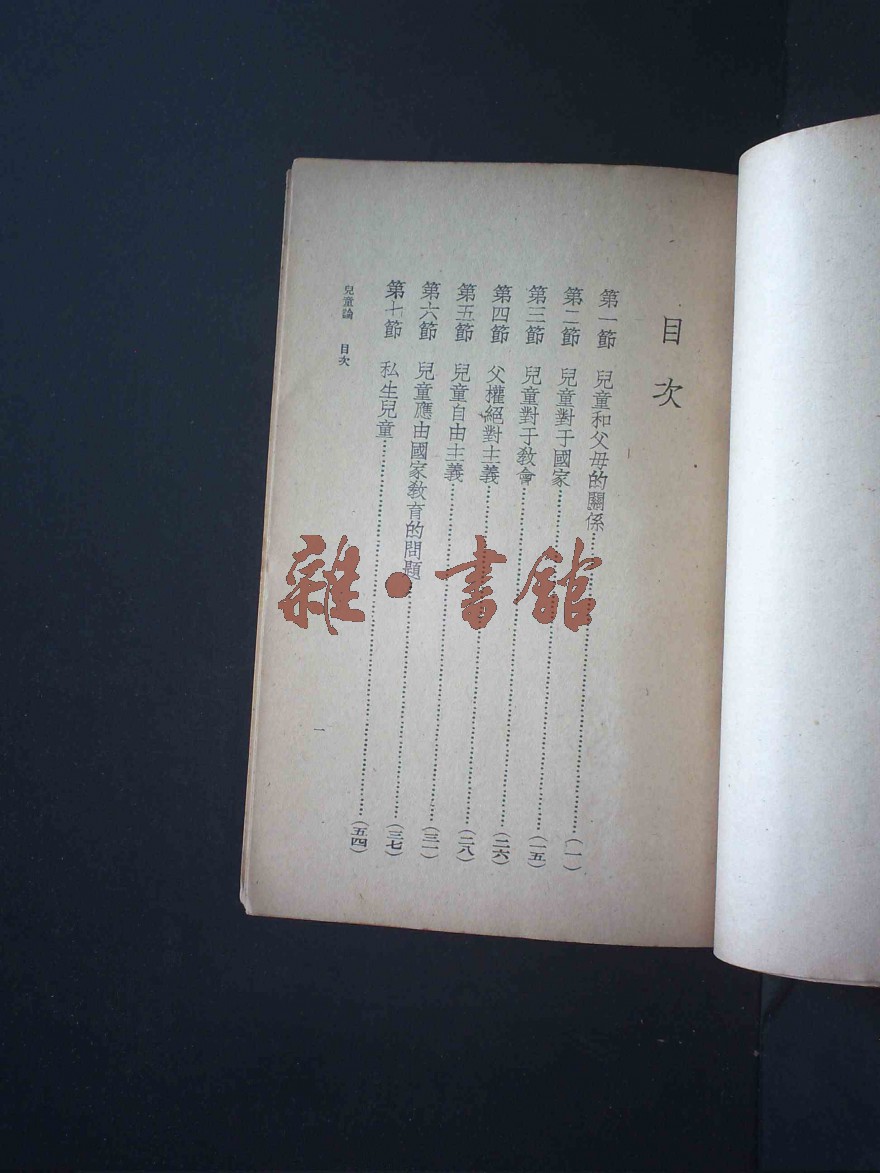 目次
第一節 兒童和父母的關係……(一)
第二節 兒童對于國家……(一五)
第三節 兒童對于敎會……(二六)
第四節 父權絕對主義……(二八)
第五節 兒童自由主義……(三一)
第六節 兒童應由國家敎育的問題……(三七)
第七節 私生兒童……(五四)
兒童論 目次
一
雜·書館